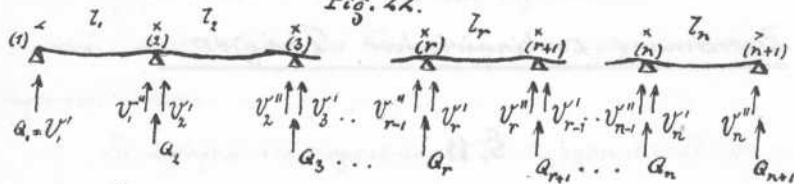 Fig. 22.
l₁ l₂ l_r l_n
(1) (2) (3) (r) (r+1) (n) (n+1)
V₁'' V₂' V₂'' V₃' .. V_{r-1}'' V_r' V_r'' V_{r-1}' .. V_{n-1}'' V_n' V_n''
Q₁ = V₁'
Q₂ Q₃ ... Q_r Q_{r+1} ... Q_n Q_{n+1}
S. 11